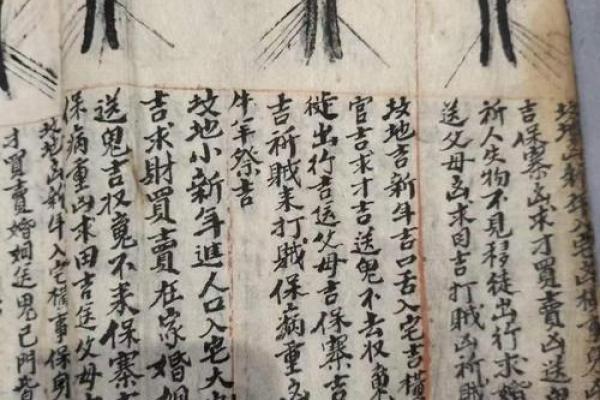 坟地凶新年入宅凶横事
吉保寨凶求才買賣凶送
祈人失物不見移徒出行求婚
送父母凶求田吉打賊凶祈賊
坟地吉新年吉口舌入宅吉横
官吉求才吉送鬼不去収
徒出行吉送父母吉保寨吉
吉祈賊来打賊保病重
牛羊祭吉
坟地小新年進人口入宅大
吉求財買賣在家婚姻
送鬼吉収魂不来保寨
保病重凶求田吉送父母
坟地凶新年入宅横事保
才買賣婚姻送鬼己門皆